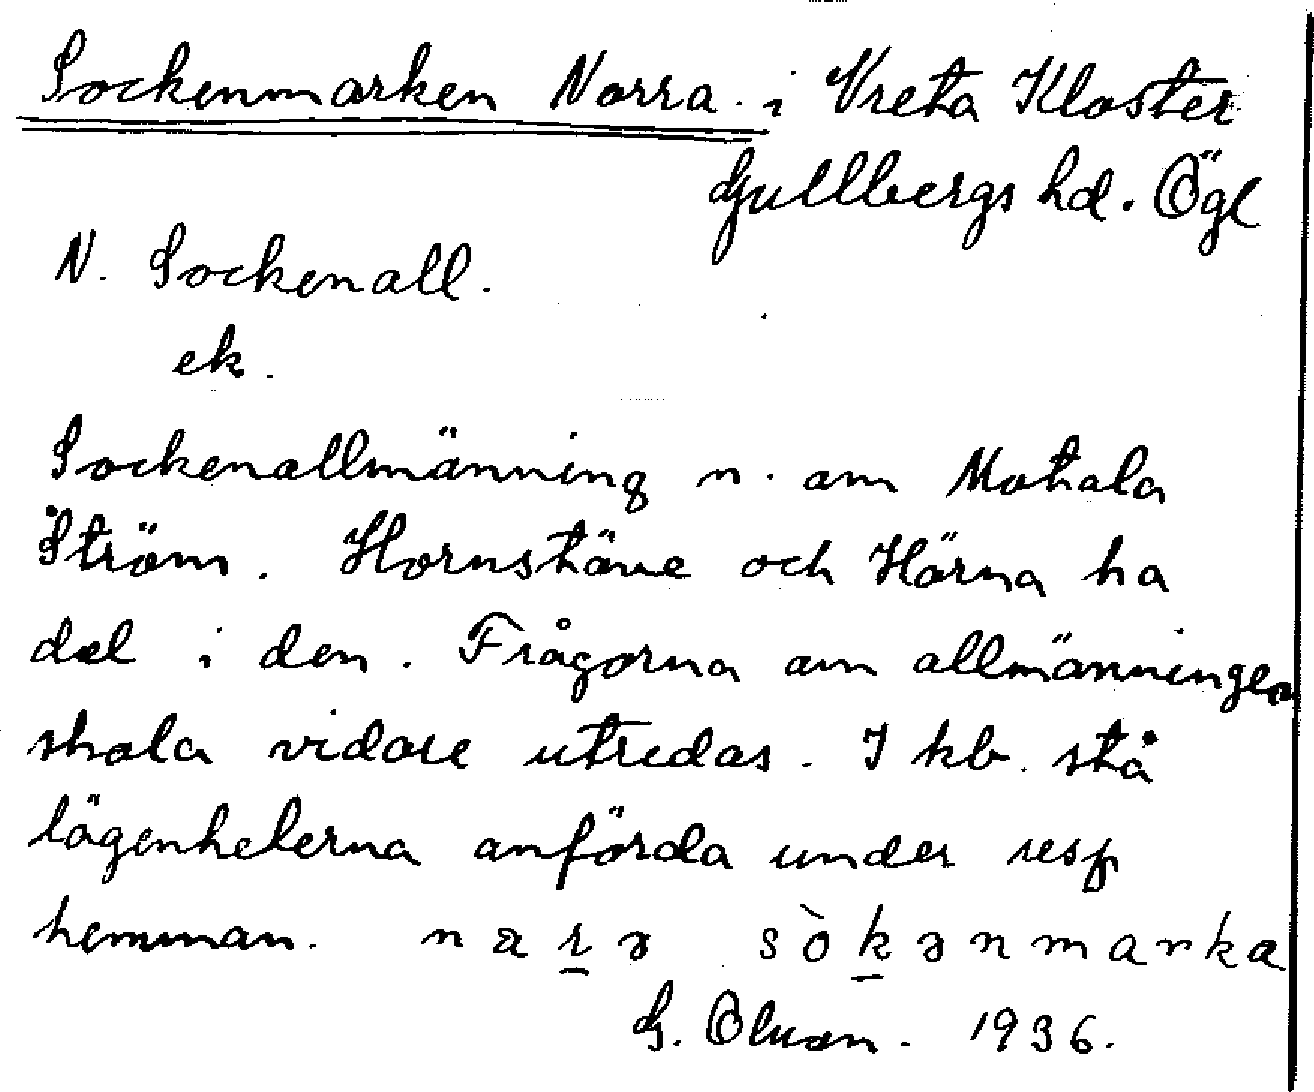 Sockenmarken Norra. i Vreta Kloster
Gullbergs hd. Ögl
N. Sockenall.
ek.
Sockenallmänning n. om Motala
Ström. Hornstäve och Härna ha
del i den. Frågorna om allmänningen
skola vidare utredas. I kb. stå
lägenheterna anförda under resp
hemman. nａrə sòkənmarka
G. 1936.